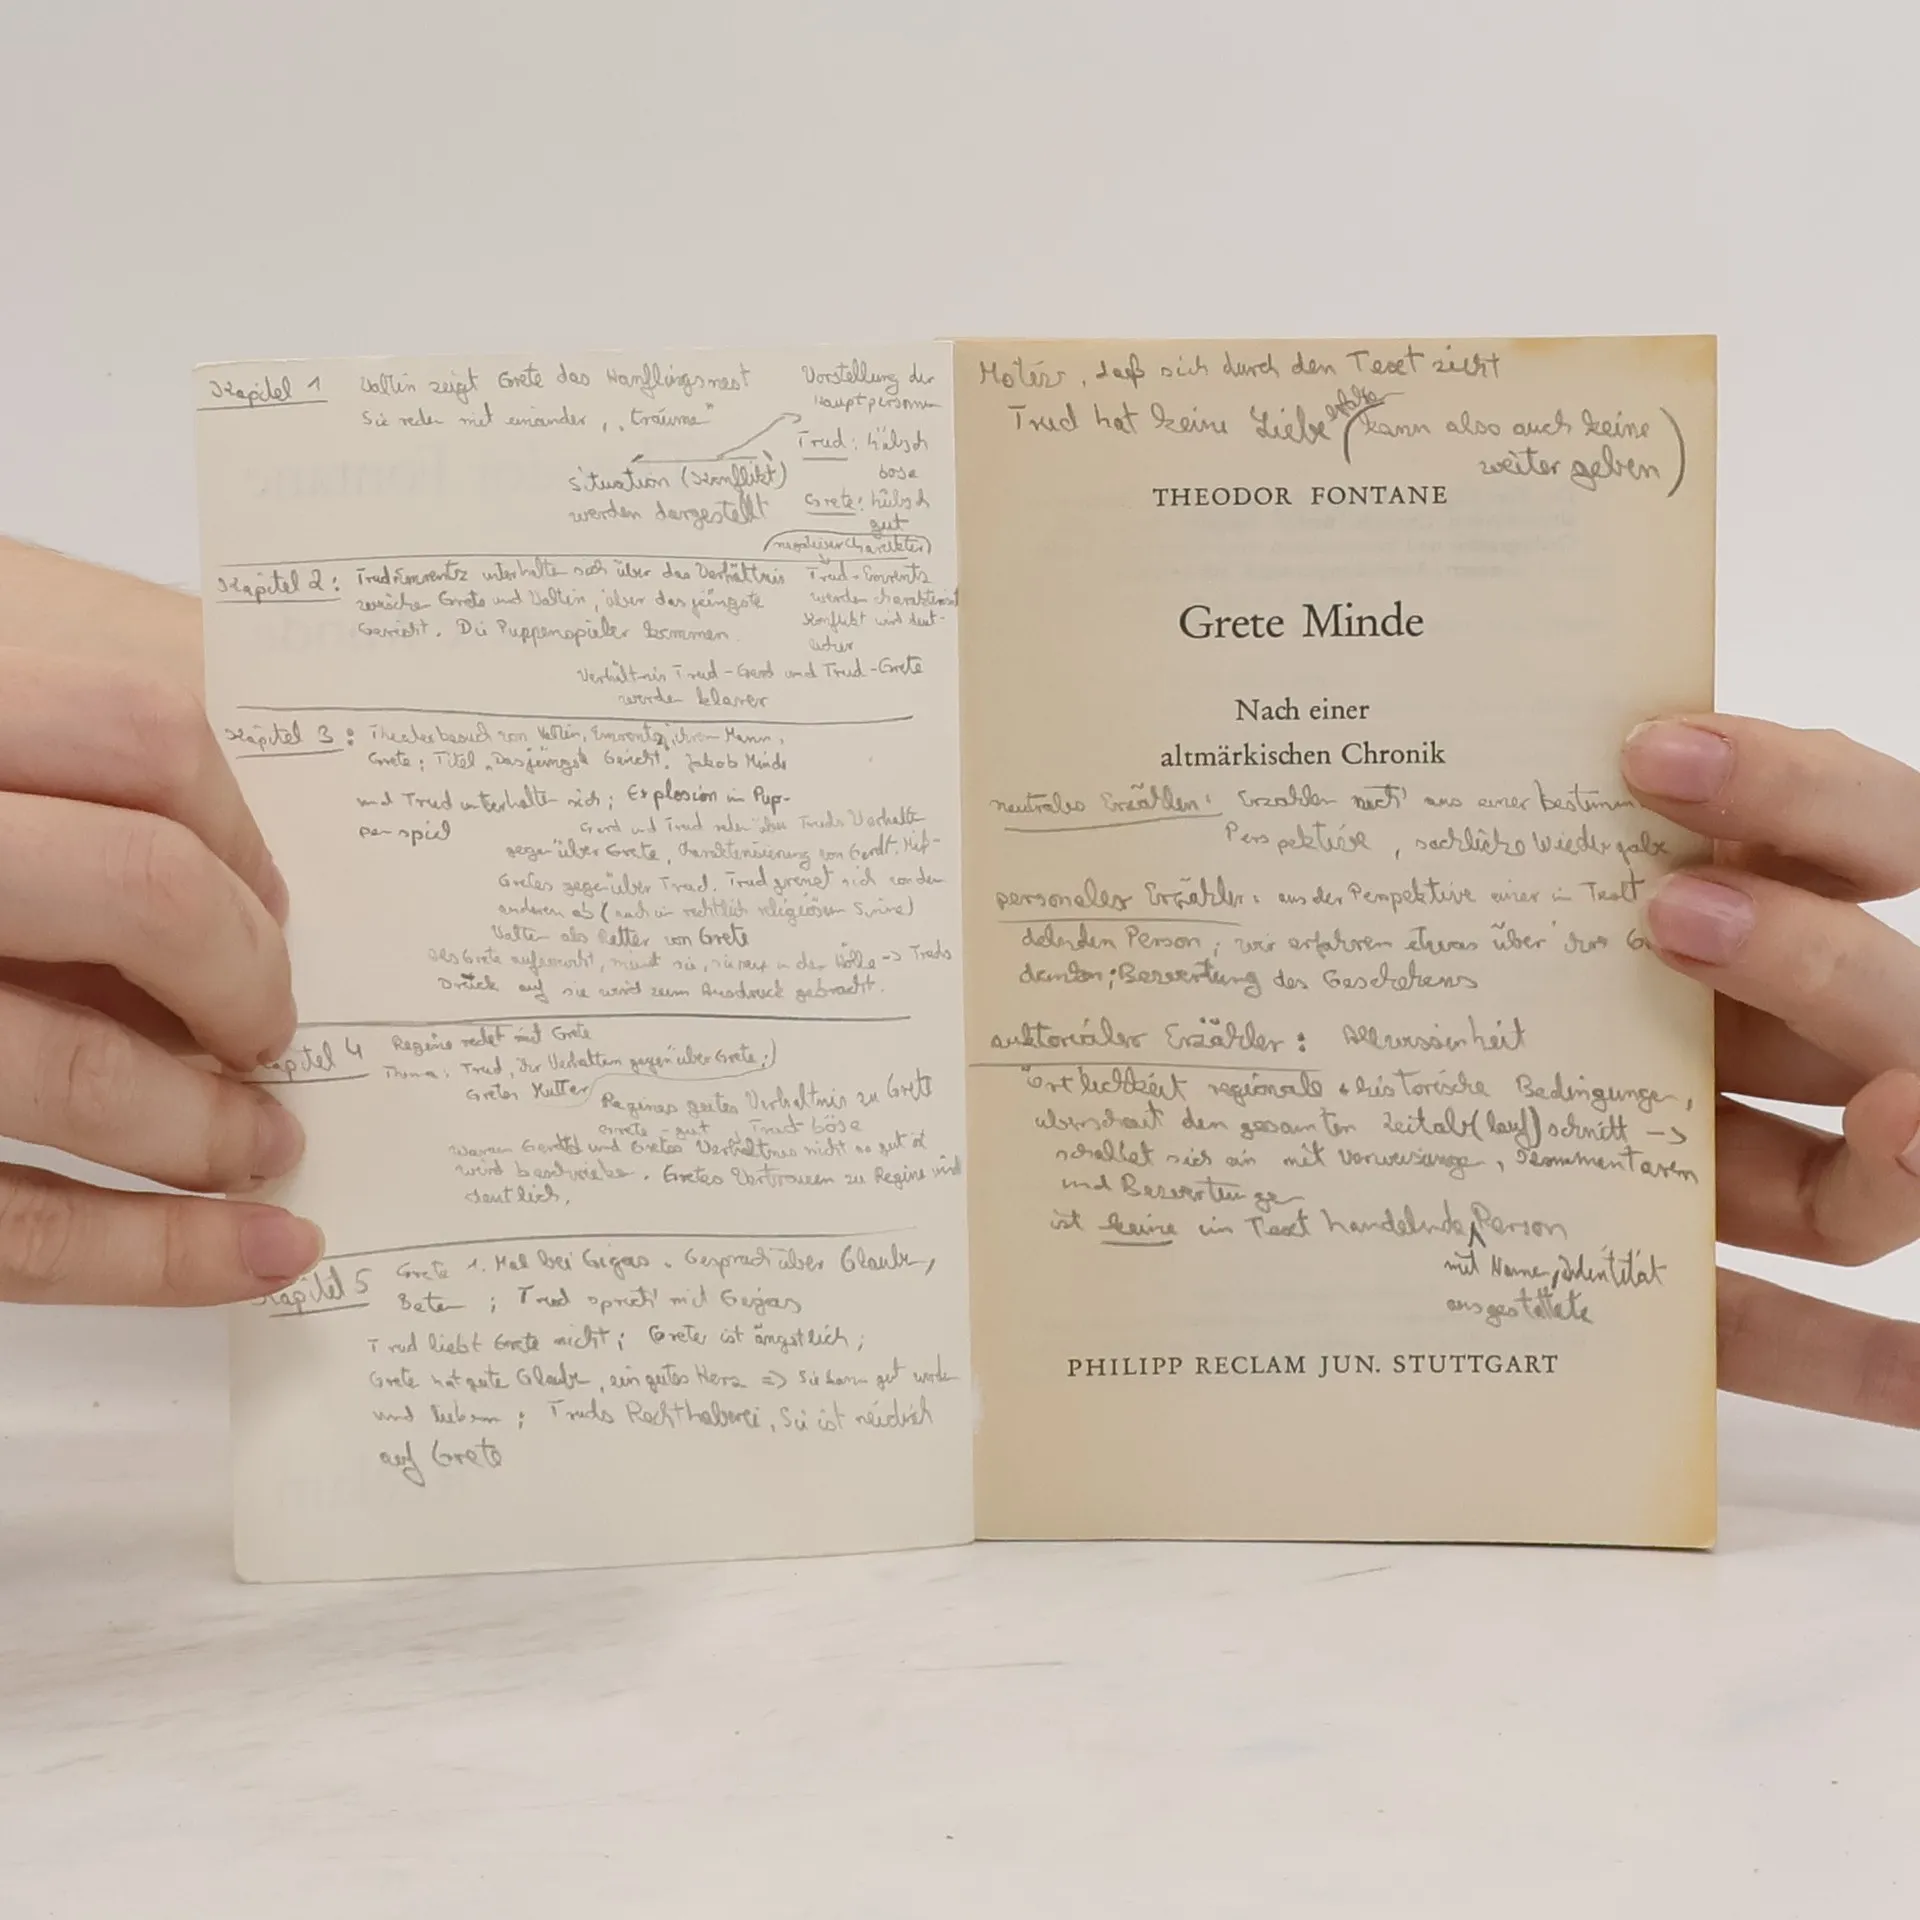 Kapitel 1 Valtin zeigt Grete das Hänflingsnest
Sie reden mit einander, "träume"
Situation (Konflikt)
werden dargestellt
Vorstellung der
Hauptpersonen
Trud: hübsch
böse
Grete: hübsch
gut
(negativer Charakter)
Kapitel 2: Trud-Emrentz unterhalten sich über das Verhältnis
zwischen Grete und Valtin, über das jüngste
Gericht. Die Puppenspieler kommen.
Trud-Emrentz
werden charakterisiert
Konflikt wird deut-
licher
Verhältnis Trud-Gerd und Trud-Grete
werden klarer
Kapitel 3: Theaterbesuch von Valtin, Emrentz, ihrem Mann,
Grete; Titel "Das jüngste Gericht. Jakob Minde
und Trud unterhalten sich; Explosion im Pup-
penspiel
Gerd und Trud reden über Truds Verhalten
gegenüber Grete, Charakterisierung von Gerdt.
Gretes gegenüber Trud. Trud grenzt sich von den
anderen ab (auch im rechtlich religiösen Sinne)
Valtin als Retter von Grete
Als Grete aufwacht, meint sie, sie sei in der Hölle -> Truds
Druck auf sie wird zum Ausdruck gebracht.
Kapitel 4 Regine redet mit Grete
Thema: Trud, ihr Verhalten gegenüber Grete;
Gretes Mutter
Regines gutes Verhältnis zu Grete
Grete - gut, Trud böse
warum Gerdts und Gretes Verhältnis nicht so gut ist
wird beschrieben. Gretes Vertrauen zu Regine wird
deutlich.
Kapitel 5 Grete 1. Mal bei Gigas. Gespräch über Glaube,
Beten; Trud spricht mit Gigas
Trud liebt Grete nicht; Grete ist ängstlich;
Grete hat gute Glaube, ein gutes Herz => Sie kann gut werden
und lieben; Truds Rechthaberei, Sie ist neidisch
auf Grete
Motiv, daß sich durch den Text zieht
Trud hat keine Liebe erfahren (kann also auch keine
weiter geben)
THEODOR FONTANE
Grete Minde
Nach einer
altmärkischen Chronik
neutrales Erzählen: Erzählen nicht aus einer bestimm
Perspektive, sachliche Wiedergabe
personaler Erzähler: aus der Perspektive einer im Text
delnden Person; wir erfahren etwas über ihre Ge
danken; Bewertung des Geschehens
auktorialer Erzähler: Allwissenheit
Örtlichkeit regionale + historische Bedingungen,
überschaut den gesamten Zeitab(lauf)schnitt ->
schaltet sich ein mit Vorweisungen, Kommentaren
und Bewertungen
ist keine im Text handelnde Person
mit Name, Identität
ausgestattete
PHILIPP RECLAM JUN. STUTTGART